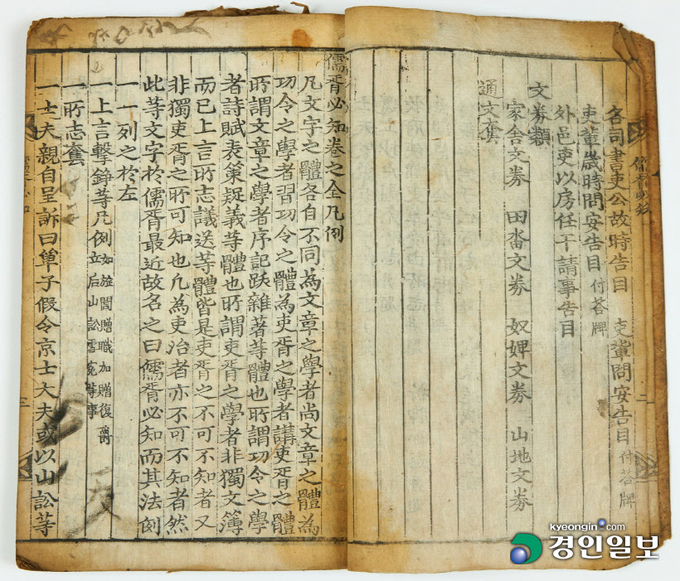 各司書吏公故時告目 吏輩問安告目 付答牌
吏輩歲時問安告目 付答牌
外邑吏以房任干請事告目
文券類
家舍文券 田畓文券 奴婢文券 山地文券
通文套
儒胥必知卷之全凡例
凡文字之體各自不同為文章之學者尚文章之體為
功令之學者習功令之體為吏胥之學者講吏胥之體
所謂文章之學者序記跋雜著等體也所謂功令之學
者詩賦表策疑義等體也所謂吏胥之學者非獨文簿
而已上言所志議送等體皆是吏胥之不可不知者又
非獨吏胥之所可知也凡為吏治者亦不可不知者然
此等文字於儒胥最近故名之曰儒胥必知而其法例
一一列之於左
一上言擊錚等凡例 如旌閭贈職加贈復爵立后山訟雪寃等事
一所志套
一士夫親自呈訴曰單子假令京士大夫或以山訟等
kyeongin.com
경인일보